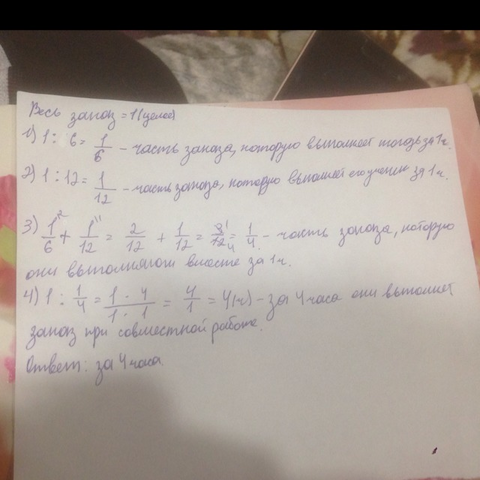 Весь заказ = 1 (целое)
1) 1 : 6 = 1/6 - часть заказа, которую выполняет токарь за 1ч.
2) 1 : 12 = 1/12 - часть заказа, которую выполняет его ученик за 1ч.
3) 1/6 + 1/12 = 2/12 + 1/12 = 3/12 = 1/4 - часть заказа, которую
они выполняют вместе за 1ч.
4) 1 : 1/4 = 1 · 4/1 · 1 = 4/1 = 4(ч) - за 4 часа они выполнят
заказ при совместной работе.
Ответ: за 4 часа